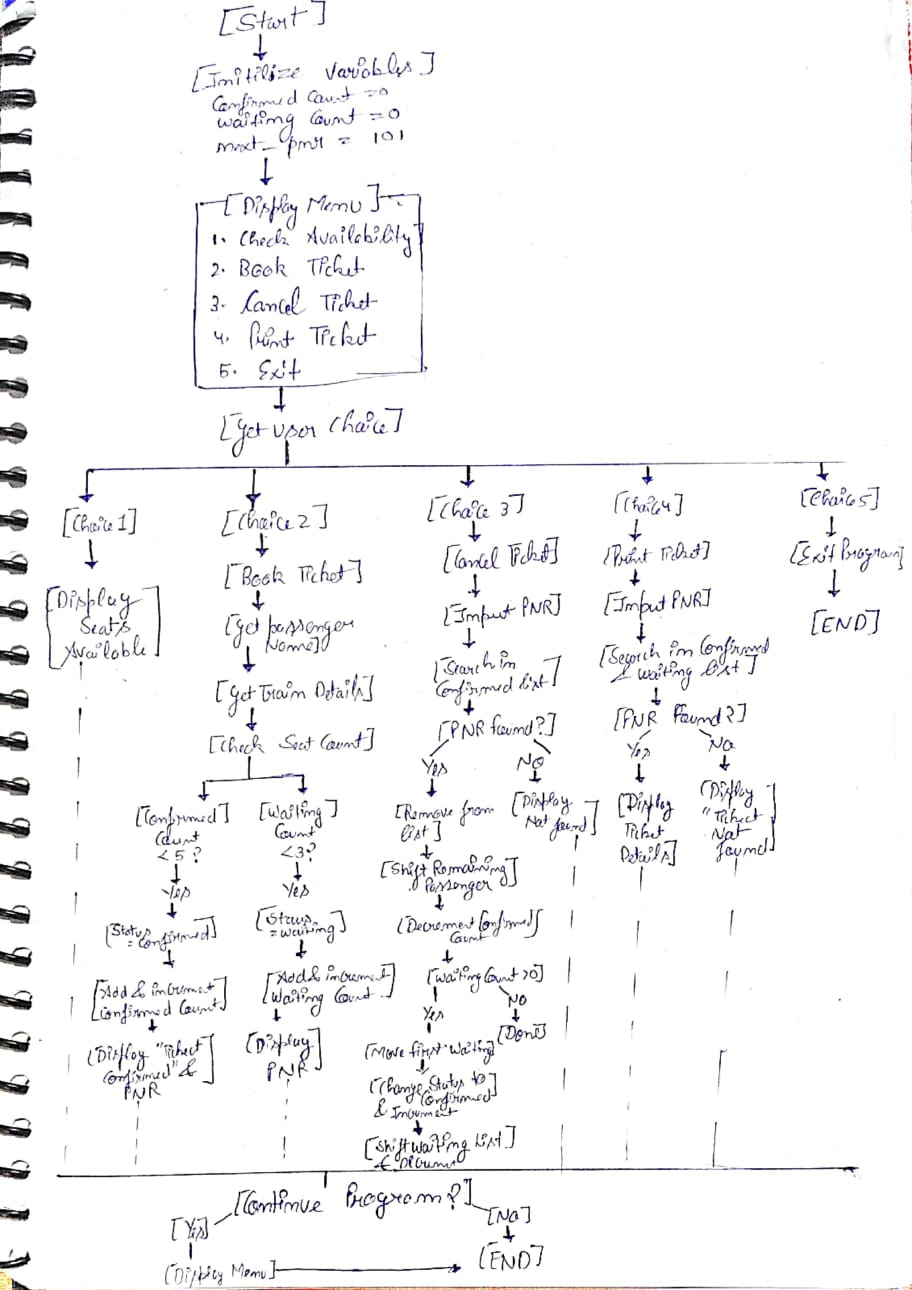 [Start]
[Initilize Variables]
Confirmed Count =0
waiting Count =0
next_pnr = 101
[Display Menu]
1. Check Availability
2. Book Ticket
3. Cancel Ticket
4. Print Ticket
5. Exit
[Get user Choice]
[Choice 1]
[Display
Seats
Available]
[Choice 2]
[Book Ticket]
[Get passenger
Name]
[Get Train Details]
[Check Seat Count]
[Confirmed]
Count
<5?
Yes
[Status
=Confirmed]
[Add & increment
Confirmed Count]
[Display "Ticket
Confirmed" &
PNR]
[Waiting]
Count
<3?
Yes
[Status
=Waiting]
[Add & increment
Waiting Count]
[Display
PNR]
[Choice 3]
[Cancel Ticket]
[Input PNR]
[Search in
Confirmed list]
[PNR found?]
Yes
[Remove from
list]
[Shift Remaining
Passenger]
[Decrement Confirmed
Count]
[Waiting Count >0]
Yes
[Move first waiting]
[Change Status to
Confirmed
& Increment]
[Shift waiting list]
No
[Done]
No
[Display
Not found]
[Choice 4]
[Print Ticket]
[Input PNR]
[Search in Confirmed
& waiting list]
[PNR Found?]
Yes
[Display
Ticket
Details]
No
[Display
"Ticket
Not
found]
[Choice 5]
[Exit Program]
[END]
[Continue Program?]
[Yes]
[Display Menu]
[No]
[END]